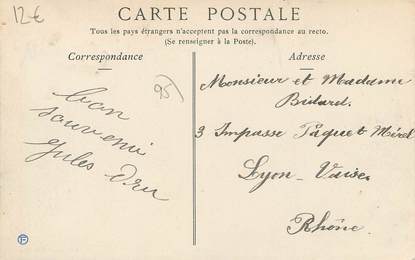 12€
CARTE POSTALE
Tous les pays étrangers n'acceptent pas la correspondance au recto.
(Se renseigner à la Poste).
Correspondance
95
bon
souvenir
Jules
Adresse
Monsieur et Madame
Bidard.
3 Impasse Paquet & Mérel
Lyon-Vaise
Rhône.